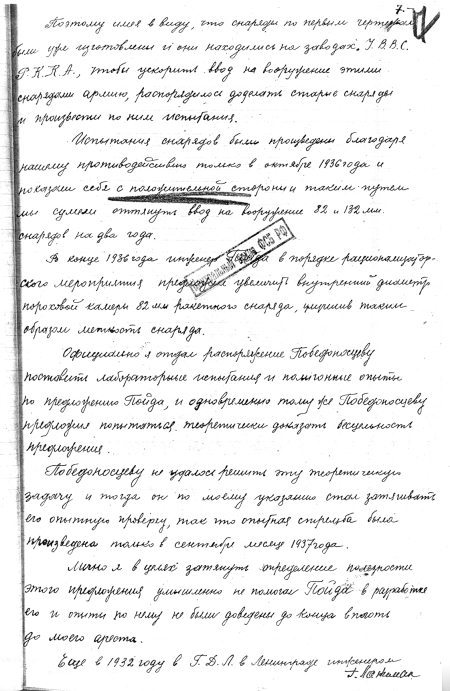 7.
Поэтому имея в виду, что снаряды по первым чертежам
были уже изготовлены и они находились на заводах. У.В.В.С.
Р.К.К.А., чтобы ускорить ввод на вооружение этими
снарядами армию, распорядилось доделать старые снаряды
и произвести по ним испытания.
Испытания снарядов были произведены благодаря
нашему противодействию только в октябре 1936 года и
показали себя с положительной стороны и таким путем
мы сумели оттянуть ввод на вооружение 82 и 132 мм.
снарядов на два года.
В конце 1936 года инженер Пойда в порядке рационализатор-
ского мероприятия предложил увеличить внутренний диаметр
пороховой камеры 82 мм ракетного снаряда, улучшив таким
образом меткость снаряда.
ФСБ РФ
Официально я отдал распоряжение Победоносцеву
поставить лабораторные испытания и полигонные опыты
по предложению Пойда, и одновременно тому же Победоносцеву
предложил попытаться теоретически доказать
предложения.
Победоносцеву не удалось решить эту теоретическую
задачу и тогда он по моему указанию стал затягивать
его опытную проверку, так что опытная стрельба была
произведена только в сентябре месяце 1937 года.
Лично я в целях затянуть определение полезности
этого предложения умышленно не помогал Пойда в разработке
его и опыты по нему не были доведены до конца вплоть
до моего ареста.
Еще в 1932 году в Г.Д.Л. в Ленинграде инженером
Г. Лангемак